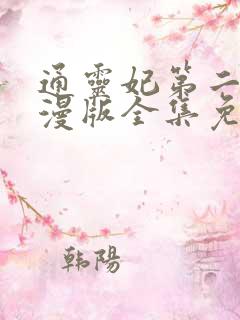 通靈妃第二
漫版全集免
韩陽